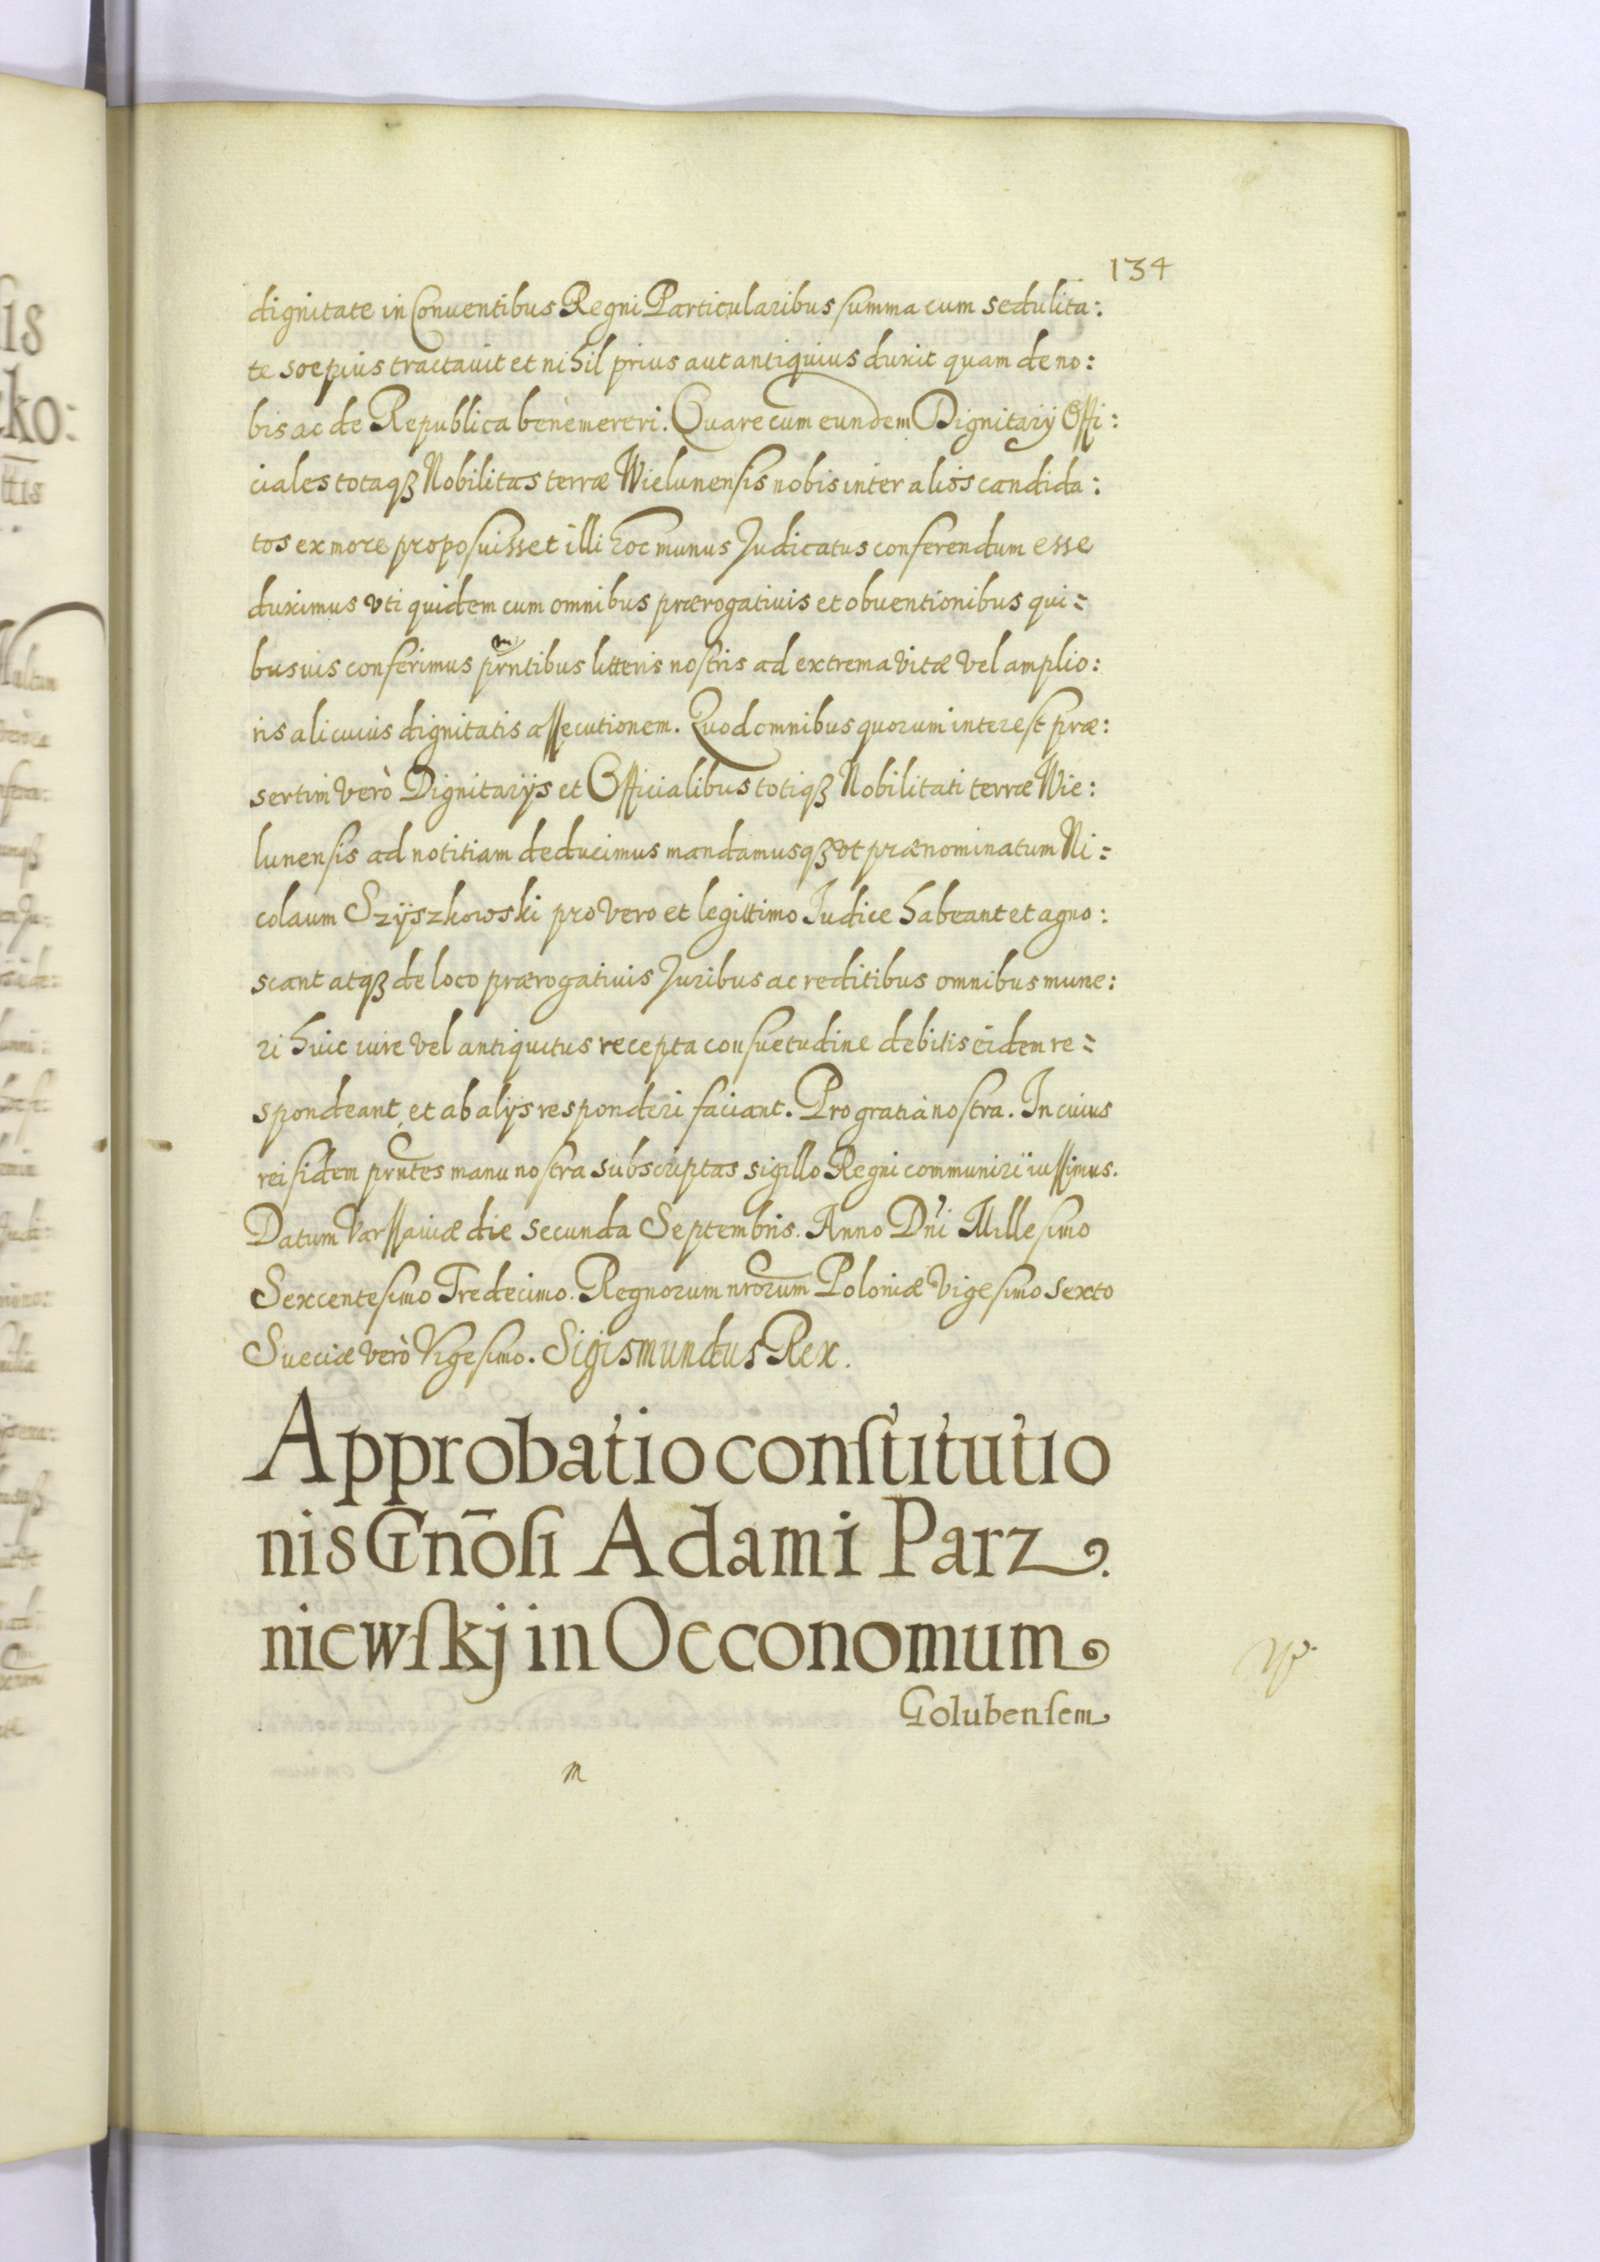 134
dignitate in Conventibus Regni Particularibus summa cum sedulita:
te soepius tractavit et nihil prius aut antiquius duxit quam de no:
bis ac de Republica benemereri. Quare cum eundem Dignitarij Offi:
ciales totaqꝫ Nobilitas terræ Wielunensis nobis inter alios candida:
tos ex more proposuisset illi hoc munus Judicatus conferendum esse
duximus vti quidem cum omnibus prærogativis et obventionibus qui=
busvis conferimus prntibus litteris nostris ad extrema vitæ vel amplio:
ris alicuius dignitatis assecutionem. Quod omnibus quorum interest præ:
sertim verò Dignitarijs et Officialibus totiqꝫ Nobilitati terræ Wie:
lunensis ad notitiam deducimus mandamusqꝫ vt prænominatum Ni=
colaum Szÿszkowski pro vero et legittimo Judice habeant et agno:
scant atqꝫ de loco prærogativis Juribus ac reditibus omnibus mune:
ri huic iure vel antiquitus recepta consuetudine debitis eidem re=
spondeant, et ab alijs responderi faciant. Pro gratia nostra. In cuius
rei fidem prntes manu nostra subscriptas sigillo Regni communiri iussimus.
Datum Varssaviæ die secunda Septembris. Anno Dni Millesimo
Sexcentesimo Tredecimo. Regnorum nrorum Poloniæ Vigesimo sexto
Sueciæ verò Vigesimo. Sigismundus Rex.
Approbatio constitutio
nis Gnōsi Adami Parz
niewskj in Oeconomum
Golubensem